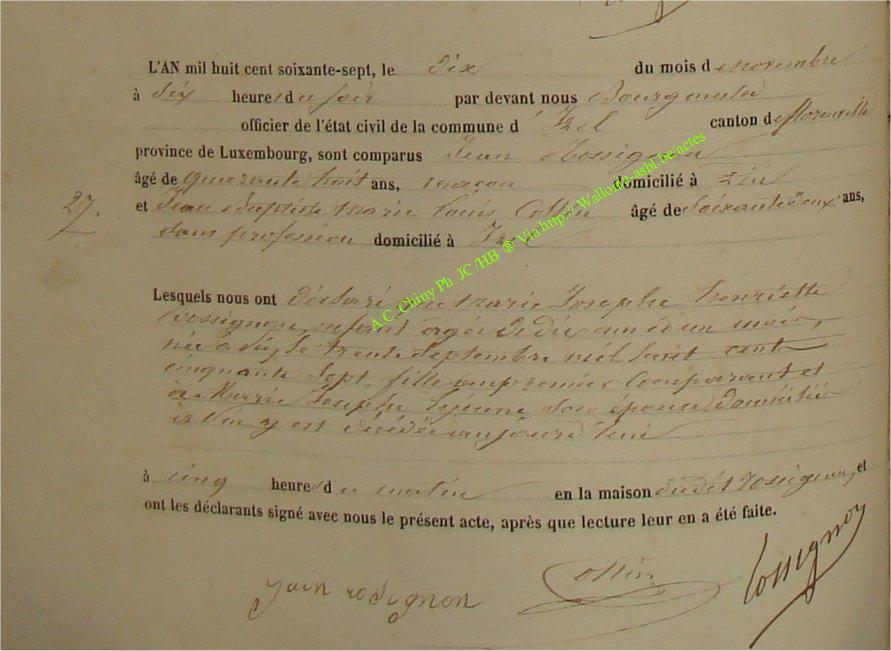 L'AN mil huit cent soixante-sept, le dix du mois de novembre
à six heures du soir par devant nous Bourgmestre
officier de l'état civil de la commune d' Izel canton de florenville
province de Luxembourg, sont comparus Jean Rossignon
âgé de quarante huit ans, maçon domicilié à Pin
27. et Jean Baptiste Marie Louis Collin âgé de soixante deux ans,
sans profession domicilié à Izel
Lesquels nous ont déclaré que Marie Josephe henriette
Rossignon, enfant agée de dix ans et un mois,
née à Pin, le trente septembre mil huit cent
cinquante sept, fille au premier comparant et
à Marie Josephe Lejeune son épouse, domicilié
à Pin y est décédée aujourd'hui
à cinq heures du matin en la maison dudit Rossignon, et
ont les déclarants signé avec nous le présent acte, après que lecture leur en a été faite.
A.C. Chiny Ph. JC /HB ® Via http:// Wallonia-asbl.be/actes
Jean rosignon
Collin
Rossignon